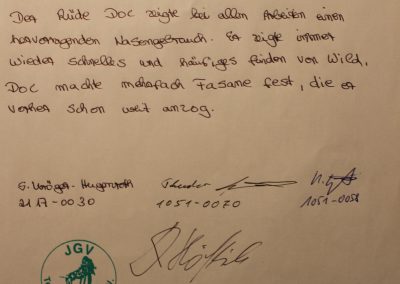 Der Rüde Doc zeigte bei allen Arbeiten einen
hervorragenden Nasengebrauch. Er zeigte immer
wieder schnelles und häufiges finden von Wild.
Doc machte mehrfach Fasane fest, die er
vorher schon weit anzog.
Theodor
2117-0030 1051-0070 1051-0058
JGV